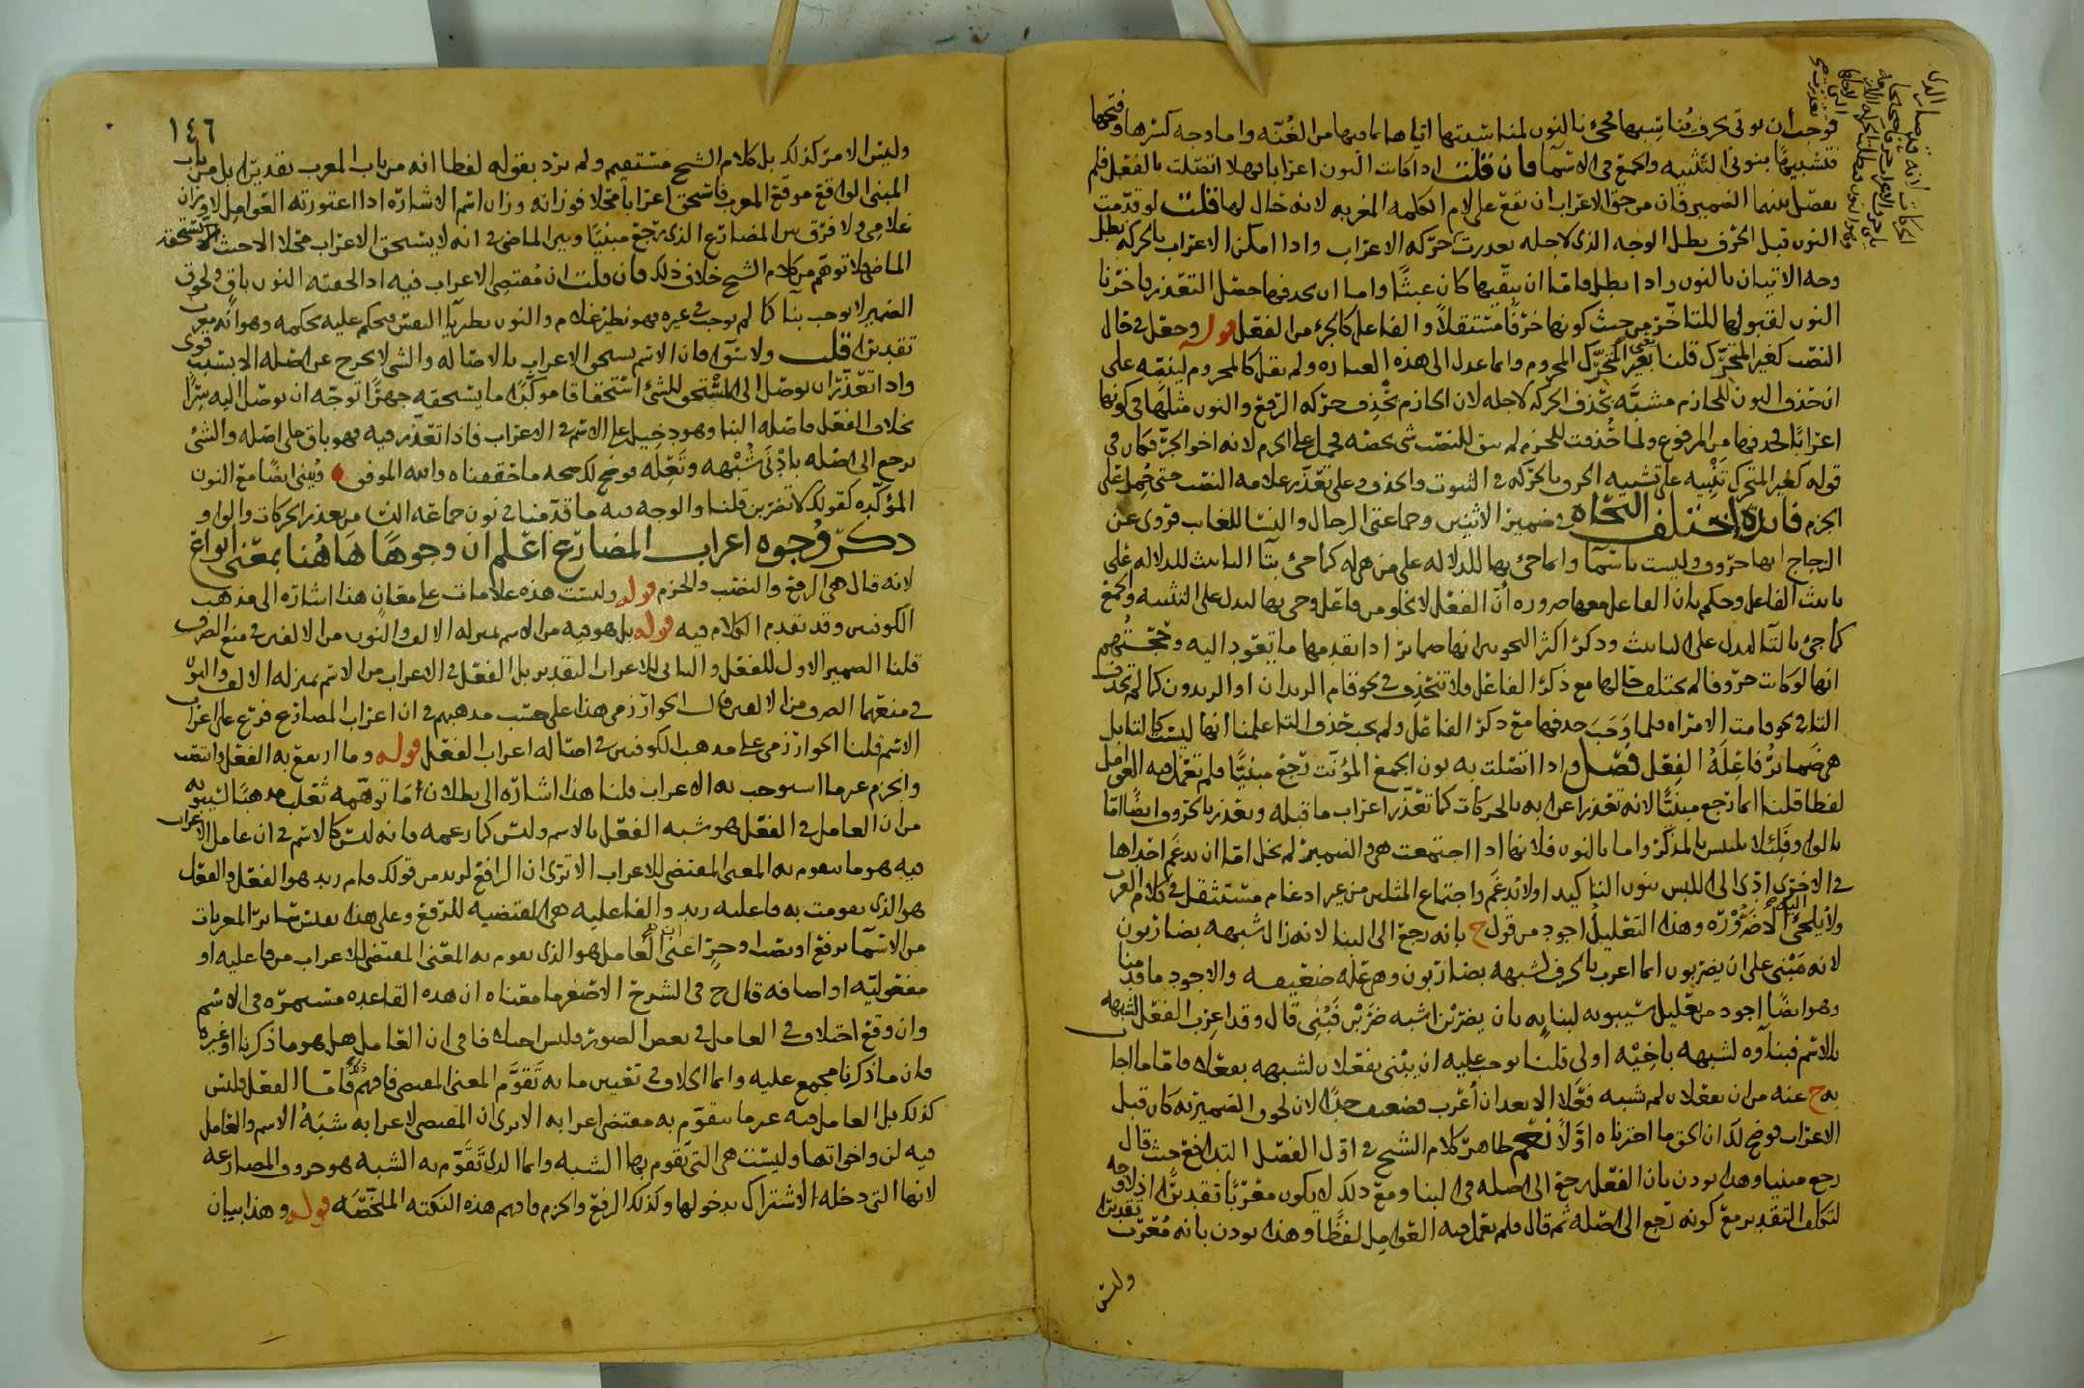 فوجب ان يوتى بحرف يناسبها فجئنا بالنون لمناسبتها اياها بما فيها من الغنه واما وجه كسرها وفتحها
فتشبيها بنونى التثنيه والجمع فى الاسما فان قلت اذا كانت النون اعرابا فهلا اتصلت بالفعل فلم
يفصل بينهما الضمير فان من حق الاعراب ان يقع على لام الكلمه المعربه لانه حال لها قلت لو قدمت
النون قبل الحرف بطل الوجه الذى لاجله تعذرت حركه الاعراب واذا امكن الاعراب بالحركه بطل
وجه الاتيان بالنون واذا بطل فاما ان يبقيها كان عبثا واما ان يحذفها حصل التعذر فاخرنا
النون لقبولها للمتاخر من حيث كونها حرفا مستقلا والفاعل كالجزء من الفعل قوله وجعل فى حال
النصب كغير المتحرك قلنا يعنى بغير المتحرك المجزوم وانما عدل الى هذه العباره ولم يقل كالمجزوم لينبه على
ان حذف النون للجازم مشبه بحذف الحركه لاجله لان الجازم يحذف حركه الرفع والنون مثلها فى كونها
اعرابا فحذفها من المرفوع ولما حذفت للجزم لم يبق للنصب شى يخصه فحمل على الجزم لانه اخو الجر فكان فى
قوله كغير المتحرك تنبيه على تشبيه الحرف بالحركه فى الثبوت والحذف وعلى تعذر علامه النصب حتى حمل على
الجزم فائدة اختلف النحاه فى ضمير الاثنين وجماعتى الرجال والنسا للغايب فروى عن
الزجاج انها حروف وليست باسما وانما جئ بها للدلاله على من هو له كما جئ بتا التانيث للدلاله على
تانيث الفاعل وحكم بان الفاعل معها ضروره ان الفعل لا يخلو من فاعل وجئ بها ليدل على التثنيه والجمع
كما جئ بالتا لتدل على التانيث وذكر اكثر النحويين انها ضمائر اذا تقدمها ما يعود اليه وحجتهم
انها لو كانت حروفا لم يختلف حالها مع ذكر الفاعل فلا تنحذف فى نحو قام الزيدان او الزيدون كما لم تحذف
التا فى نحو قامت الامراه فلما وجب حذفها مع ذكر الفاعل ولم يجب حذف التا علمنا انها ليست كالتا بل
هى ضمائر فاعله الفعل فصل واذا اتصلت به نون الجمع المؤنث رجع مبنيا فلم تعمل فيه العوامل
لفظا قلنا انما رجع مبنيا لانه تعذر اعرابه بالحركات كما تعذر اعراب ما قبله وتعذر بالحروف ايضا اما
بالواو فلئلا يلتبس بالمذكر واما بالنون فلانها اذا اجتمعت هى والضمير لم يخل اما ان يدغم احداها
فى الاخرى ادى الى اللبس بنون التاكيد اولا يدغم واجتماع المثلين من غير ادغام مستثقل فى كلام العرب
ولا يلجئ اليه الا ضروره وهذا التعليل اجود من قول ح بانه رجع الى البنا لانه زال شبهه بضاربون
لانه مبنى على ان يضربون انما اعرب بالحرف لشبهه بضاربون وهى علة ضعيفه والاجود ما قدمنا
وهو ايضا اجود من تعليل سيبويه لبنايه بان يضربن اشبه ضربن فبنى قال وقد اعرب الفعل لشبهه
بالاسم فبناوه لشبهه باخيه اولى قلنا يوجب عليه ان يبنى يفعلان لشبهه بفعلا فاما ما اجاب
به ح عنه من ان يفعلان لم يشبه فعلا الا بعد ان اعرب فضعيف جدا لان لحوق الضمير به كان قبل
الاعراب فوضح لك ان الحق ما اخترناه اولا نعم ظاهر كلام الشيخ فى اول الفصل التدافع حيث قال
رجع مبنيا وهذا يوذن بان الفعل رجع الى اصله فى البنا ومع ذلك لا يكون معربا تقديرا اذ لا وجه
لتكلف التقدير مع كونه رجع الى اصله ثم قال فلم تعمل فيه العوامل لفظا وهذا يوذن بانه معرب تقديرا
وليس
١٤٦
وليس الامر كذلك بل كلام الشيخ مستقيم ولم يرد بقوله لفظا انه من باب المعرب تقديرا بل من باب
المبنى الواقع موقع المعرب فاستحق اعرابا محلا فوزانه وزان اسم الاشاره اذا اعتورته العوامل لا وزان
غلامى ولا فرق بين المضارع الذى رجع مبنيا وبين الماضى فى انه لا يستحق الاعراب محلا الا حيث يستحقه
الماضى فلا توهم من كلام الشيخ خلاف ذلك فان قلت ان مقتضى الاعراب فيه اذا لحقته النون باق ولحوق
الضمير لا يوجب بنا كما لم يوجب فى غيره فهو نظير غلام والنون نظير يا النفس فيحكم عليه بحكمه وهو انه معرب
تقديرا قلت ولا سوا فان الاسم يستحق الاعراب بالاصاله والشى لا يخرج عن اصله الا بسبب قوى
واذا تعذر ان يوصل الى المستحق للشئ استحقاقا موكدا ما يستحقه جهرا توجه ان يوصل اليه سرا
بخلاف الفعل فاصله البنا وهو دخيل على الاسم فى الاعراب فاذا تعذر فيه فهو باق على اصله والشئ
يرجع الى اصله بادنى شبهه وتعله فوضح لك صحه ما حققناه والله الموفق ويبنى ايضا مع النون
المؤكده كقولك لا تضربن قلنا والوجه فيه ما قدمنا فى نون جماعه النسا من تعذر الحركات والواو
ذكر وجوه اعراب المضارع اعلم ان وجوهها هاهنا بمعنى انواع
لانه قال هى الرفع والنصب والجزم قوله وليست هذه علامات على معان هذا اشاره الى مذهب
الكوفيين وقد تقدم الكلام فيه قوله بل هو فيه من الاسم بمنزله الالف والنون من الالفين فى منع الصرف
قلنا الضمير الاول للفعل والثانى للاعراب التقدير بل الفعل فى الاعراب من الاسم بمنزله الالف والنون
فى منعهما الصرف من الالفين قال الخوارزمى هذا على حسب مذهبهم فى ان اعراب المضارع فرع على اعراب
الاسم قلنا الخوارزمى على مذهب الكوفيين فى اصاله اعراب الفعل قوله وما ارتفع به الفعل وانتصب
وانجزم غير ما استوجب به الاعراب قلنا هذا اشاره الى بطلان ما توهمه ثعلب مذهبا لسيبويه
من ان العامل فى الفعل هو شبه الفعل بالاسم وليس كما زعمه فانه ليس كالاسم فى ان عامل الاعراب
فيه هو ما يتقوم به المعنى المقتضى للاعراب الا ترى ان الرافع لزيد من قولك قام زيد هو الفعل والفعل
هو الذى تقومت به فاعليه زيد والفاعليه هى المقتضيه للرفع وعلى هذا فقس سائر المعربات
من الاسما برفع او نصب او جر اعنى ان العامل هو الذى يقوم به المعنى المقتضى للاعراب من فاعليه او
مفعوليه او اضافه قال ح فى الشرح الاصغر ما معناه ان هذه القاعده مستمره فى الاسم
وان وقع اختلاف فى العامل فى بعض الصور فليس اختلافا فى ان العامل هل هو ما ذكرنا او غيره
فان ما ذكرنا مجمع عليه وانما الخلاف فى تعيين ما به تقوم المعنى المقتضى فافهم ذلك فاما الفعل فليس
كذلك بل العامل فيه غير ما يتقوم به مقتضى اعرابه الا ترى ان المقتضى لاعرابه شبه الاسم والعامل
فيه لن واخواتها وليست هى التى يقوم بها الشبه وانما الذى تقوم به الشبه هو حروف المضارعه
لانها التى دخله الاشتراك بدخولها وكذلك الرفع والجزم فافهم هذه النكته الملخصه قوله وهذا بيان